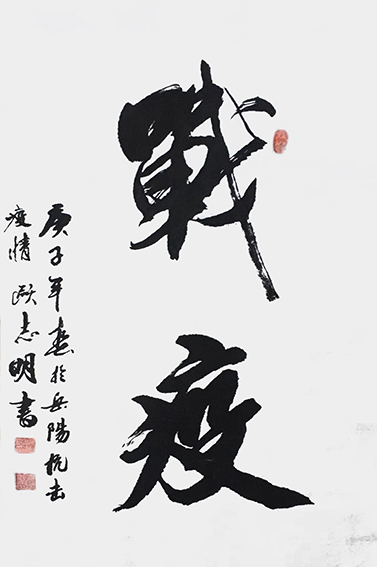 戰疫
庚子年春於岳陽抗击
疫情 歐志明書